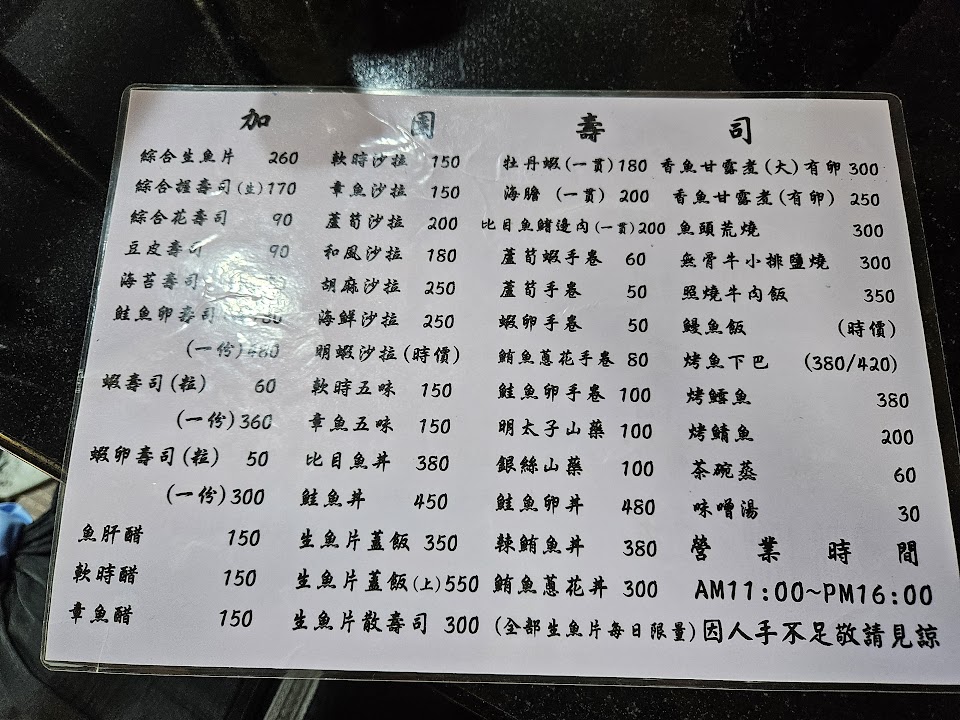 加園壽司
綜合生魚片 260
綜合握壽司(生)170
綜合花壽司 90
豆皮壽司 90
海苔壽司
鮭魚卵壽司 80
(一份)480
蝦壽司(粒) 60
(一份)360
蝦卵壽司(粒) 50
(一份)300
魚肝醋 150
軟時醋 150
章魚醋 150
軟時沙拉 150
章魚沙拉 150
蘆荀沙拉 200
和風沙拉 180
胡麻沙拉 250
海鮮沙拉 250
明蝦沙拉(時價)
軟時五味 150
章魚五味 150
比目魚丼 380
鮭魚丼 450
生魚片蓋飯 350
生魚片蓋飯(上)550
生魚片散壽司 300
牡丹蝦(一貫)180
海膽 (一貫) 200
比目魚鰭邊肉(一貫)200
蘆荀蝦手卷 60
蘆荀手卷 50
蝦卵手卷 50
鮪魚蔥花手卷 80
鮭魚卵手卷 100
明太子山藥 100
銀絲山藥 100
鮭魚卵丼 480
辣鮪魚丼 380
鮪魚蔥花丼 300
(全部生魚片每日限量)
香魚甘露煮(大)有卵 300
香魚甘露煮(有卵) 250
魚頭荒燒 300
無骨牛小排鹽燒 300
照燒牛肉飯 350
鰻魚飯 (時價)
烤魚下巴 (380/420)
烤鱈魚 380
烤鯖魚 200
茶碗蒸 60
味噌湯 30
營業時間
AM11:00~PM16:00
因人手不足敬請見諒